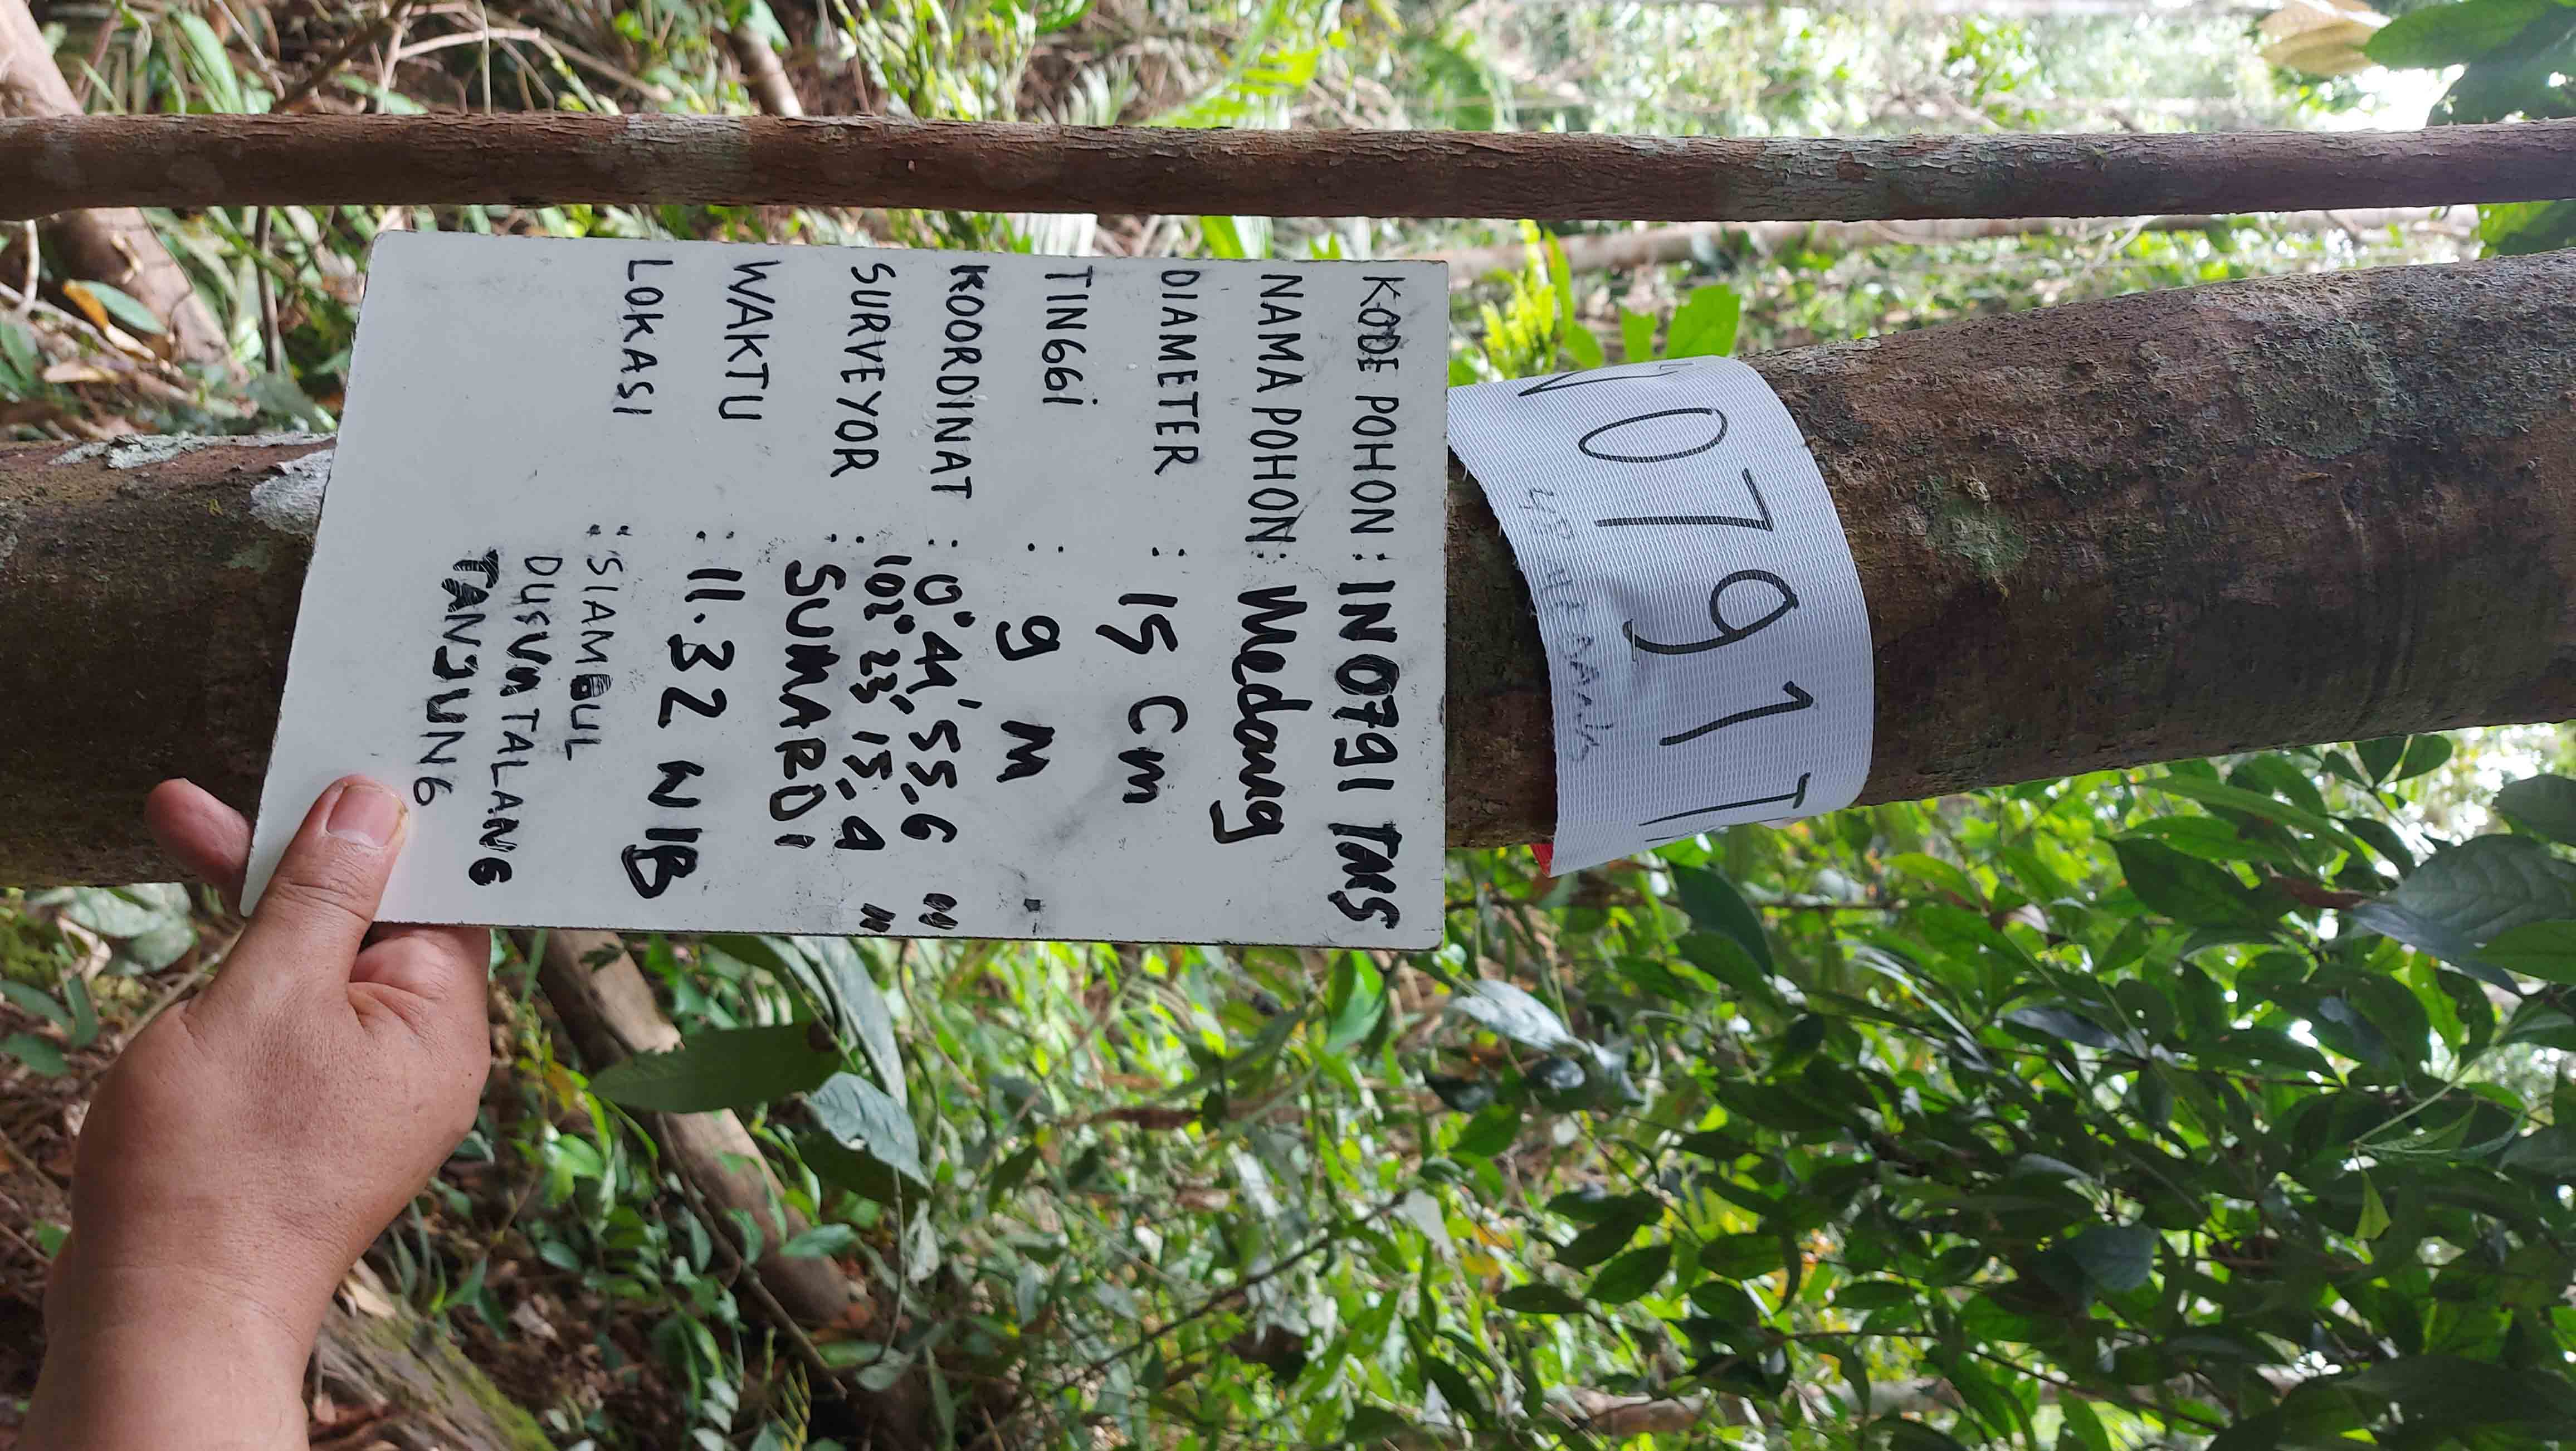 N0791T
KODE POHON : IN0791 TMS
NAMA POHON : Medang
DIAMETER : 15 Cm
TINGGI : 9 M
KOORDINAT : 0°44'55,6 "
102° 23' 15,4 "
SURVEYOR : SUMARDI
WAKTU : 11.32 WIB
LOKASI : SIAMBUL
DUSUN TALANG
TANJUNG